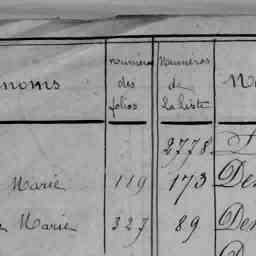 noms numéros des folios Numéros de la liste
2778
Marie 119 173 De
Marie 327 89 De